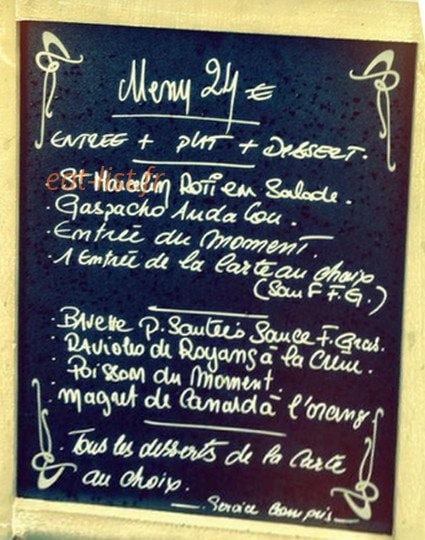 Menu 24 €
ENTREE + PLAT + DESSERT.
St Marcelin Roti en Salade.
· Gaspacho Andalou.
· Entrée du Moment.
· 1 Entrée de la Carte au choix
(Sauf F.G.)
· Bavette P. Sautées Sauce F. Gras.
· Ravioles de Royans à la Crème.
· Poisson du Moment.
· Magret de Canard à l'orange
· Tous les desserts de la Carte
au choix.
Service Compris